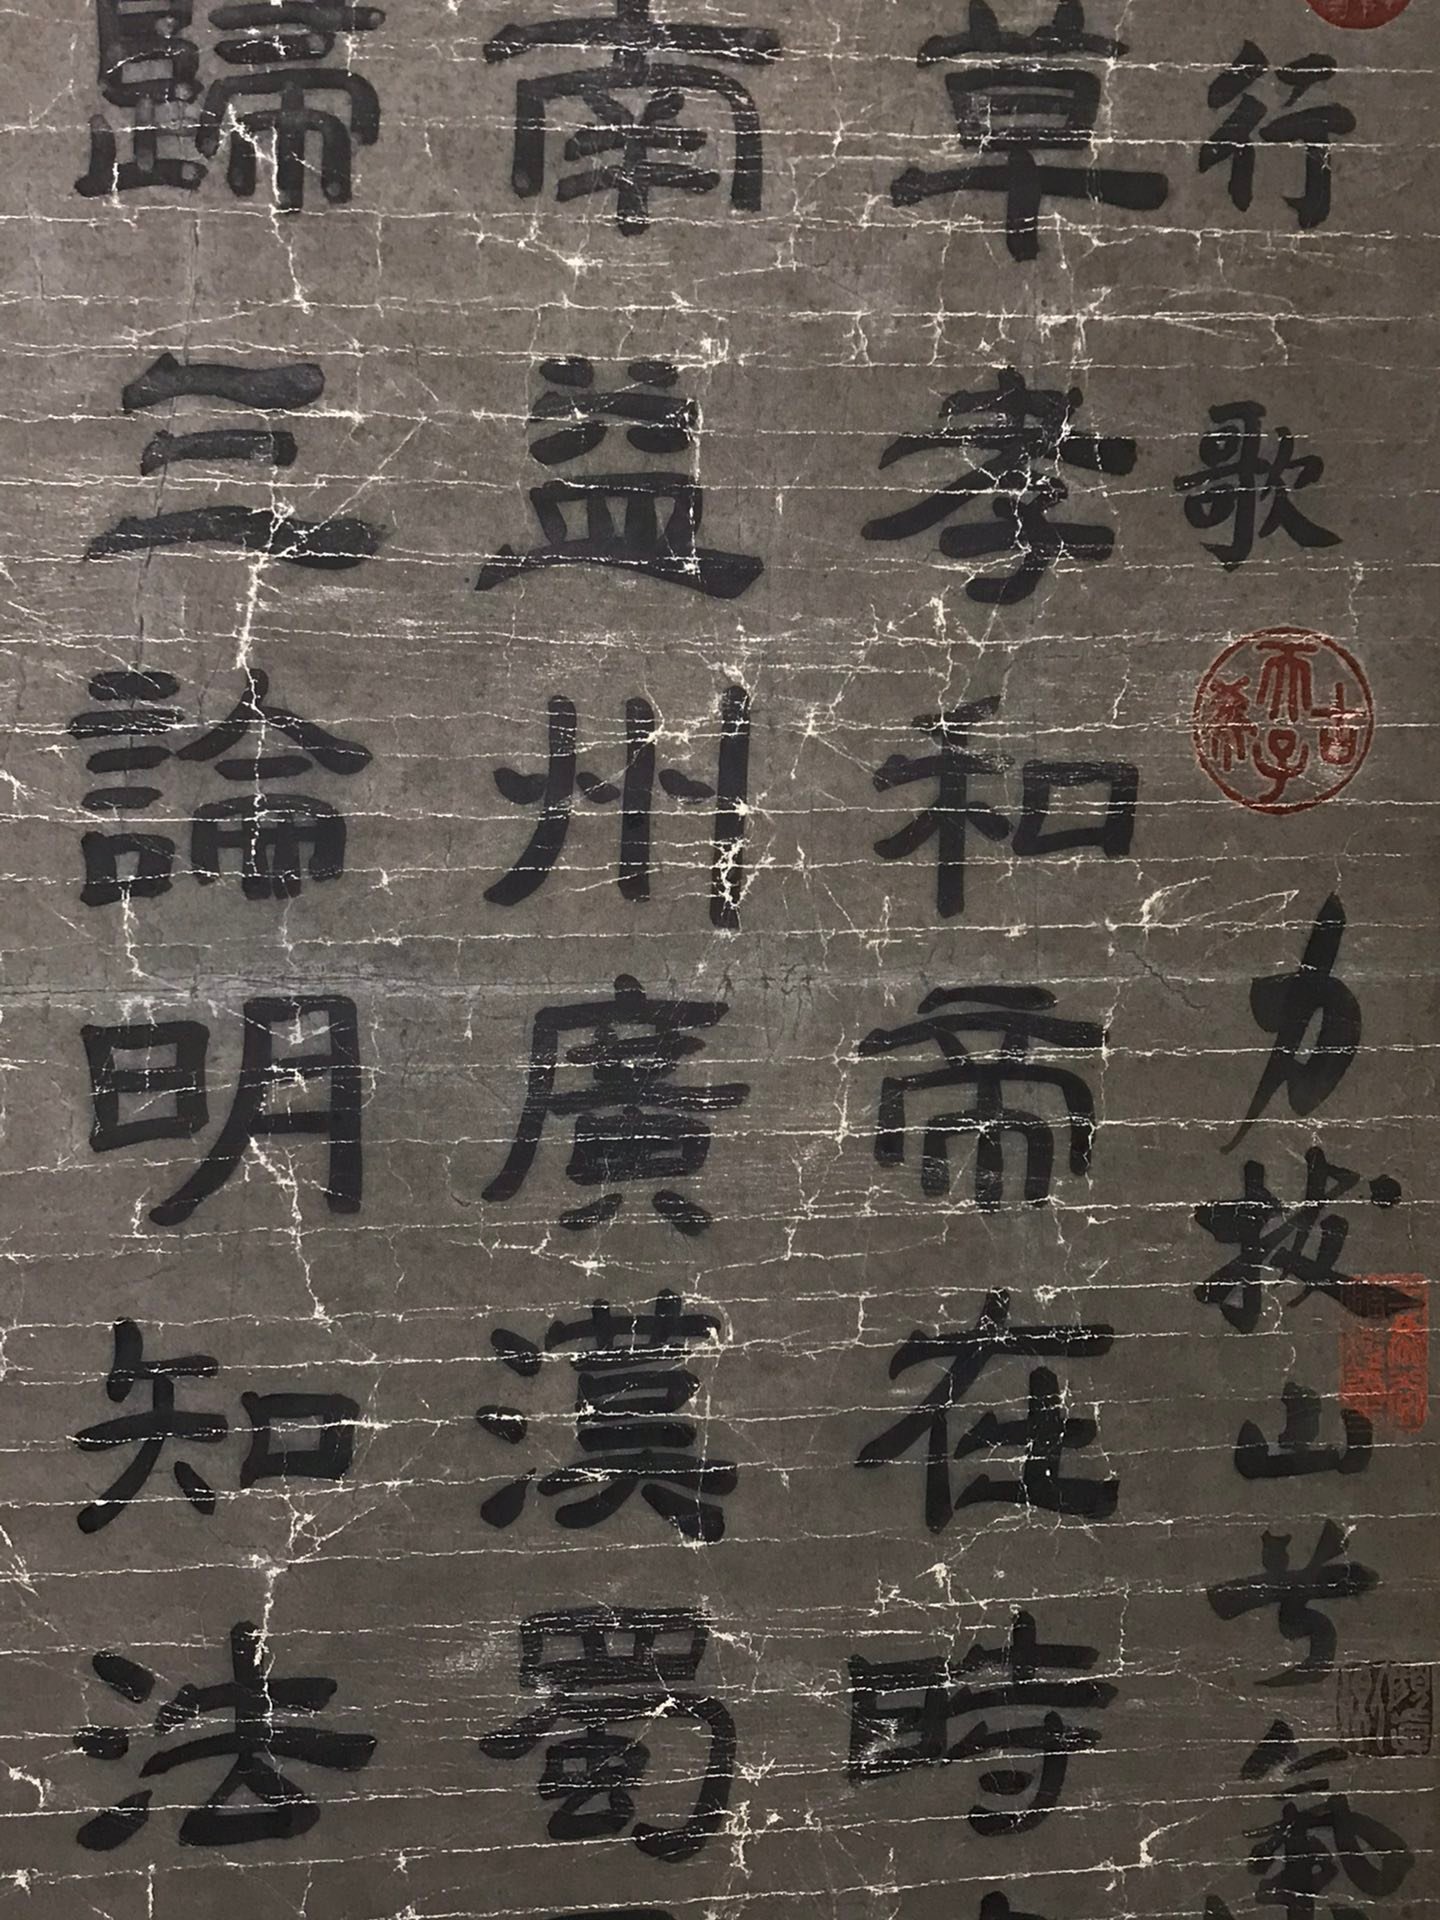 行歌 力拔山兮氣
草孝和帝在時
南益州廣漢蜀
歸三論明知法